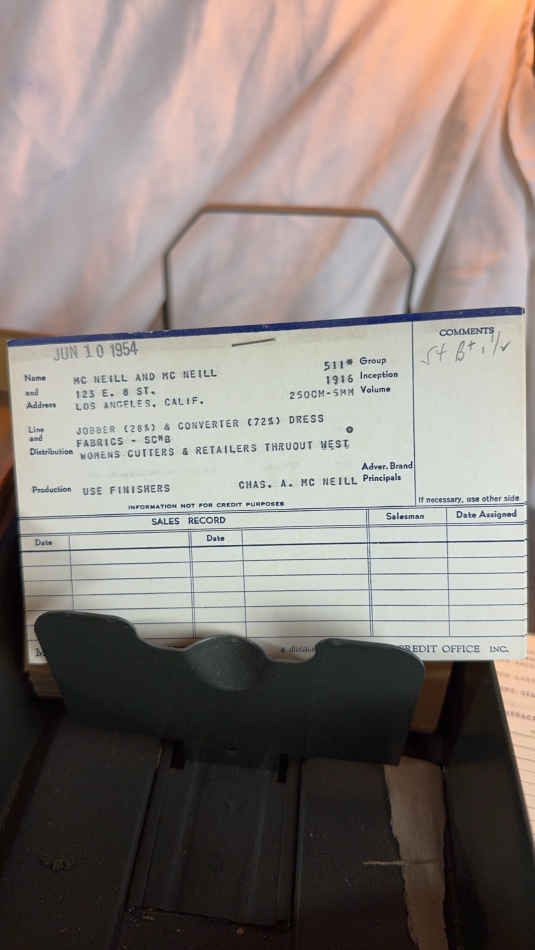 JUN 10 1954
COMMENTS
Name MC NEILL AND MC NEILL 511* Group
and 123 E. 8 ST. 1916 Inception
Address LOS ANGELES, CALIF. 250CM-5MM Volume
Line JOBBER (28%) & CONVERTER (72%) DRESS
and FABRICS - SC*B
Distribution WOMENS CUTTERS & RETAILERS THRUOUT WEST
Adver. Brand
Production USE FINISHERS CHAS. A. MC NEILL Principals
If necessary, use other side
INFORMATION NOT FOR CREDIT PURPOSES
SALES RECORD Salesman Date Assigned
Date Date
CREDIT OFFICE INC.